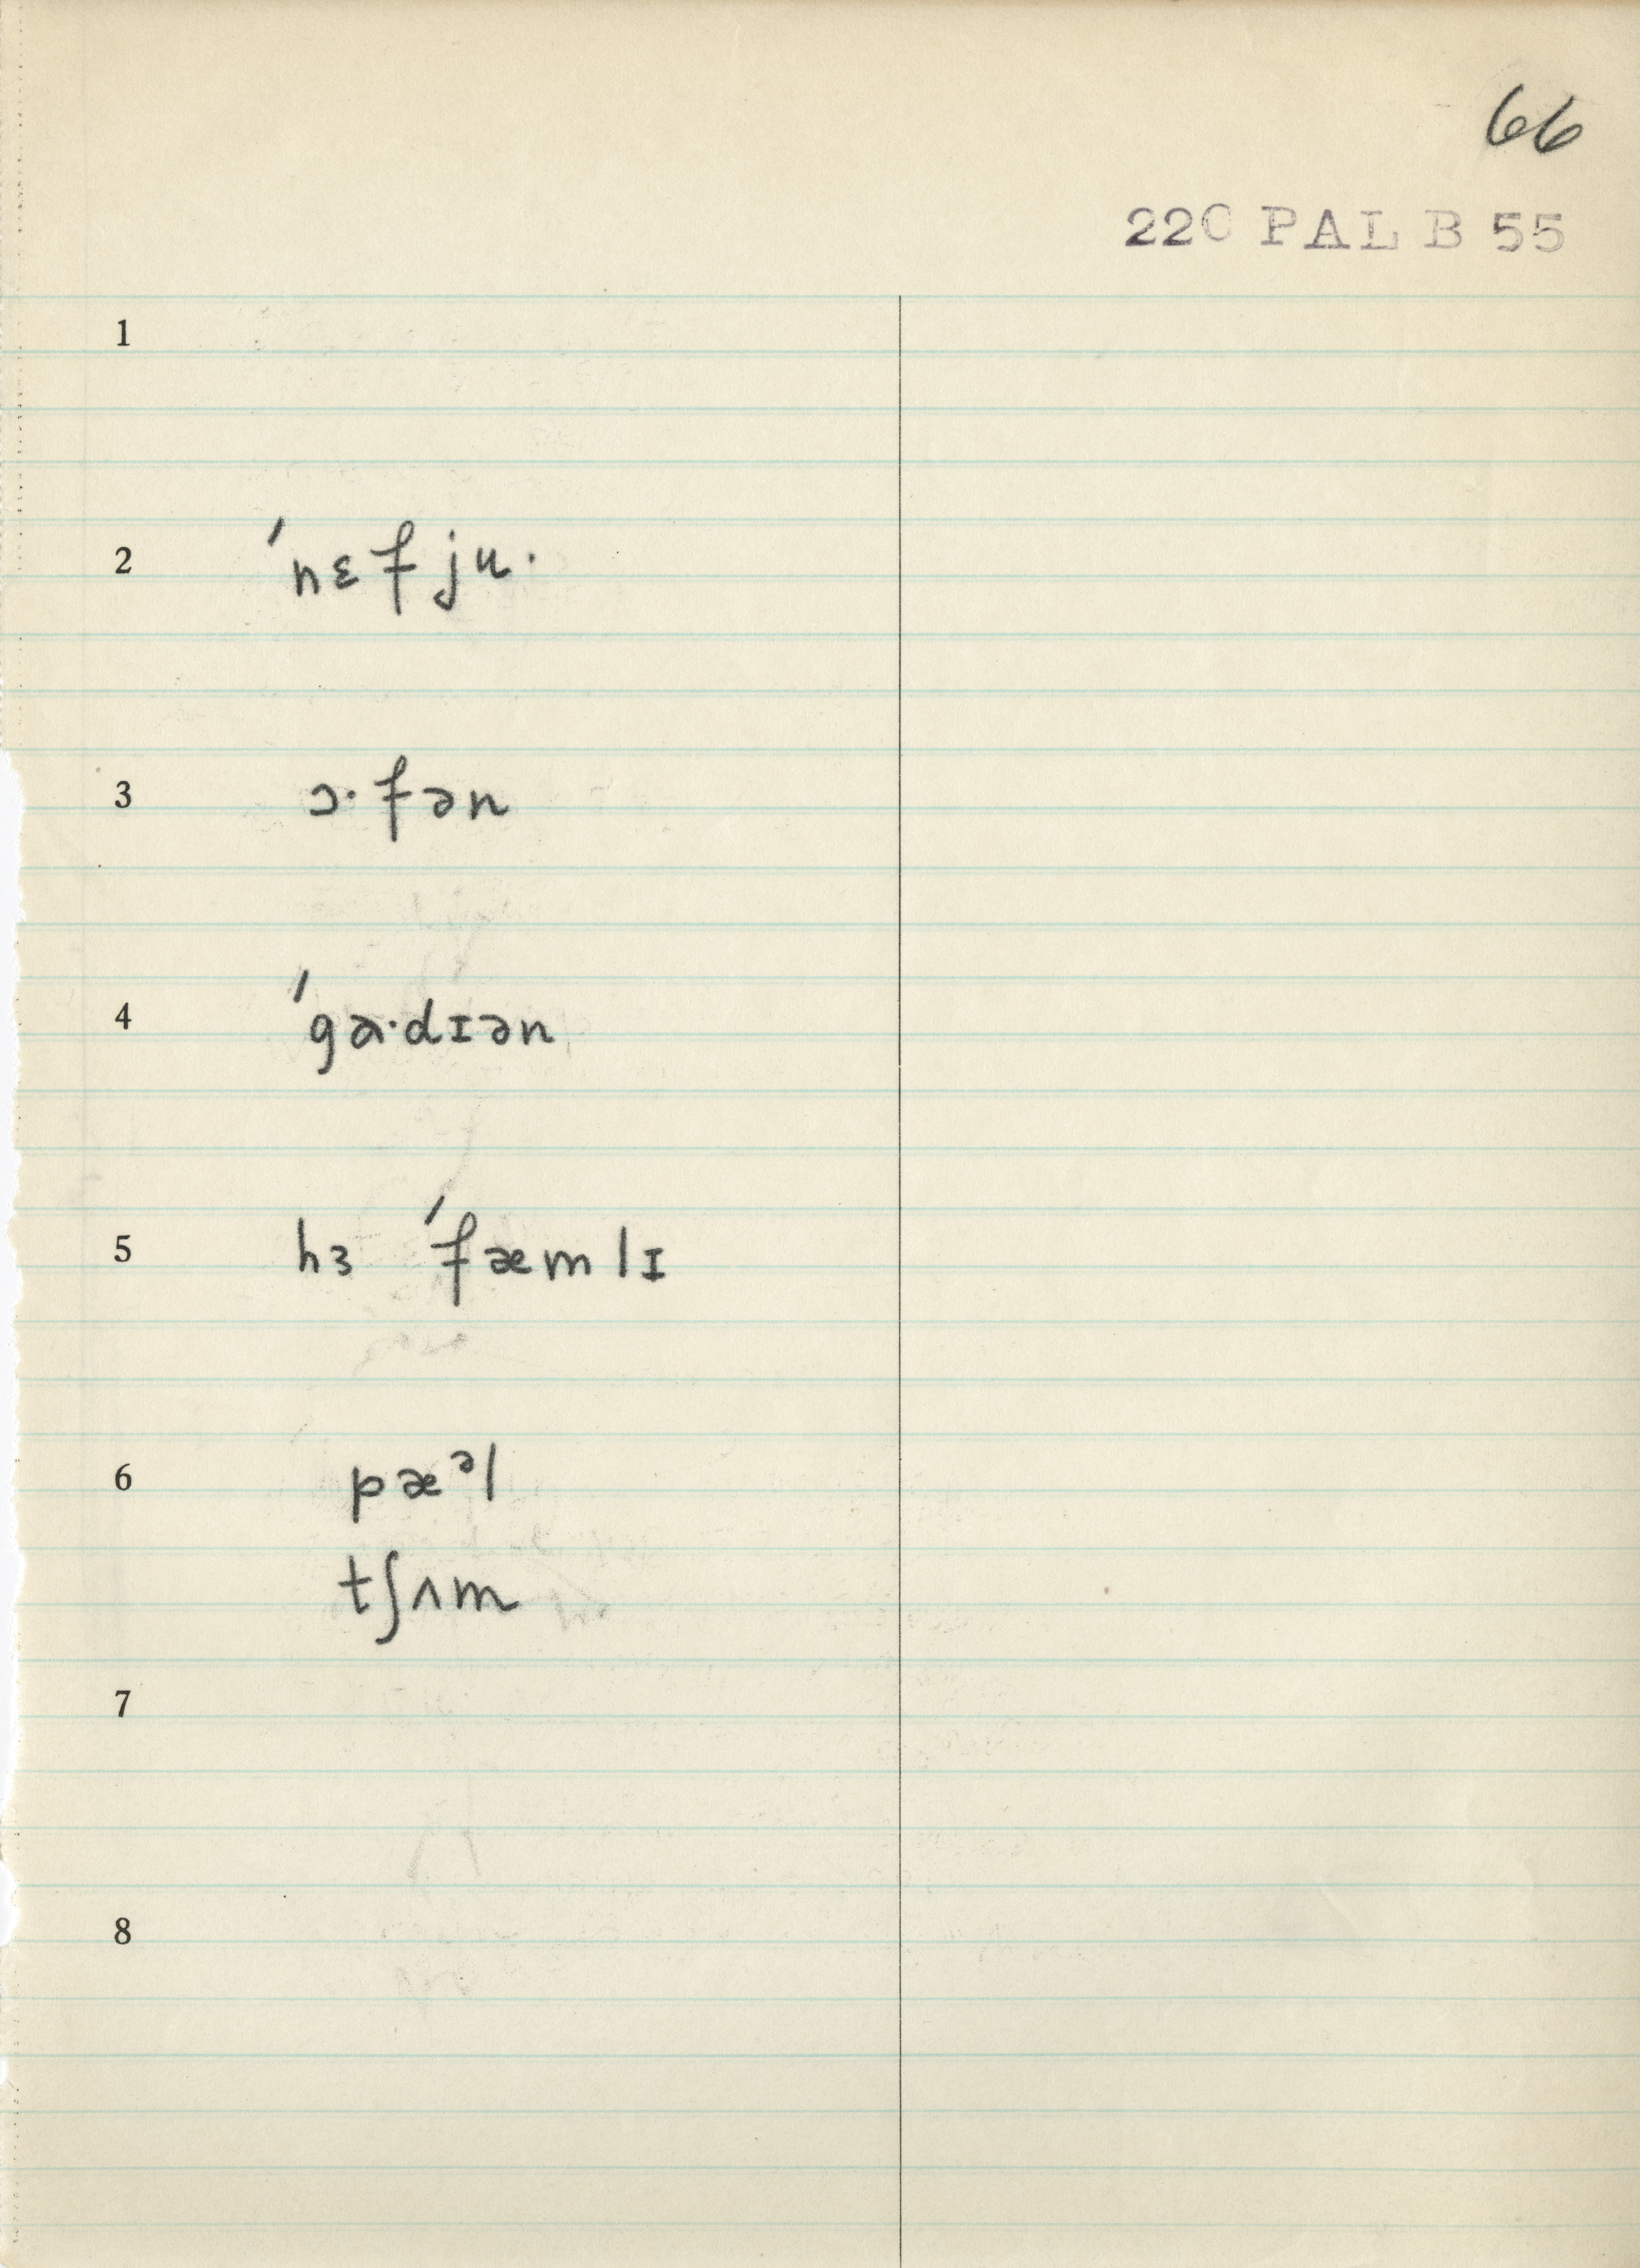 66
220 PAL B 55
1
2 ˈnɛfju·
3 ɔ·fən
4 ˈgɑ·dɪən
5 hɜ ˈfæmlɪ
6 pæᵊl
tʃʌm
7
8